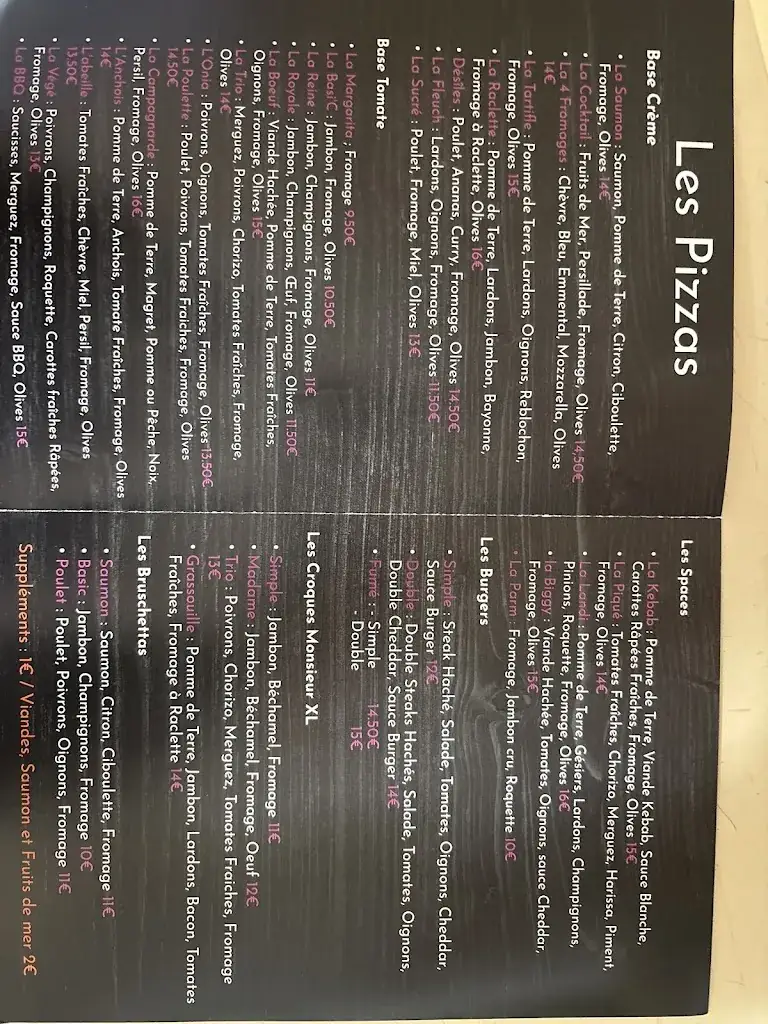 Les Pizzas
Base Crème
• La Saumon : Saumon, Pomme de Terre, Citron, Ciboulette,
Fromage, Olives 14€
• La Cocktail : Fruits de Mer, Persillade, Fromage, Olives 14,50€
• La 4 Fromages : Chèvre, Bleu, Emmental, Mozzarella, Olives
14€
• La Tartifle : Pomme de Terre, Lardons, Oignons, Reblochon,
Fromage, Olives 15€
• La Raclette : Pomme de Terre, Lardons, Jambon, Bayonne,
Fromage à Raclette, Olives 16€
• Désiles : Poulet, Ananas, Curry, Fromage, Olives 14.50€
• La Fleuch : Lardons, Oignons, Fromage, Olives 11,50€
• La Sucré : Poulet, Fromage, Miel, Olives 13€
Base Tomate
• La Margarita ; Fromage 9.50€
• La Basi'C : Jambon, Fromage, Olives 10.50€
• La Reine : Jambon, Champignons, Fromage, Olives 11€
• La Royale : Jambon, Champignons, Œuf, Fromage, Olives 11.50€
• La Boeuf : Viande Hachée, Pomme de Terre, Tomates Fraîches,
Oignons, Fromage, Olives 15€
• La Trio : Merguez, Poivrons, Chorizo, Tomates Fraîches, Fromage,
Olives 14€
• L'Onia : Poivrons, Oignons, Tomates Fraîches, Fromage, Olives 13.50€
• La Poulette : Poulet, Poivrons, Tomates Fraîches, Fromage, Olives
14.50€
• La Campagnarde : Pomme de Terre, Magret, Pomme ou Pêche, Noix,
Persil, Fromage, Olives 16€
• L'Anchois : Pomme de Terre, Anchois, Tomate Fraîches, Fromage, Olives
14€
• L'abeille : Tomates Fraîches, Chèvre, Miel, Persil, Fromage, Olives
13.50€
• La Végé : Poivrons, Champignons, Roquette, Carottes fraîches Râpées,
Fromage, Olives 13€
• La BBQ : Saucisses, Merguez, Fromage, Sauce BBQ, Olives 15€
Les Spaces
• La Kebab : Pomme de Terre, Viande Kebab, Sauce Blanche,
Carottes Râpées Fraîches, Fromage, Olives 15€
• La Piqué : Tomates Fraîches, Chorizo, Merguez, Harissa, Piment,
Fromage, Olives 14€
• La Landi : Pomme de Terre, Gésiers, Lardons, Champignons,
Pinions, Roquette, Fromage, Olives 16€
• la Biggy : Viande Hachée, Tomates, Oignons, sauce Cheddar,
Fromage, Olives 15€
• La Parm : Fromage, Jambon cru, Roquette 10€
Les Burgers
• Simple : Steak Haché, Salade, Tomates, Oignons, Cheddar,
Sauce Burger 12€
• Double : Double Steaks Hachés, Salade, Tomates, Oignons,
Double Cheddar, Sauce Burger 14€
• Fumé : - Simple 14.50€
- Double 15€
Les Croques Monsieur XL
• Simple : Jambon, Béchamel, Fromage 11€
• Madame : Jambon, Béchamel, Fromage, Oeuf 12€
• Trio : Poivrons, Chorizo, Merguez, Tomates Fraiches, Fromage
13€
• Grassouille : Pomme de Terre, Jambon, Lardons, Bacon, Tomates
Fraîches, Fromage à Raclette 14€
Les Bruschettas
• Saumon : Saumon, Citron, Ciboulette, Fromage 11€
• Basic : Jambon, Champignons, Fromage 10€
• Poulet : Poulet, Poivrons, Oignons, Fromage 11€
Suppléments : 1€ / Viandes, Saumon et Fruits de mer 2€